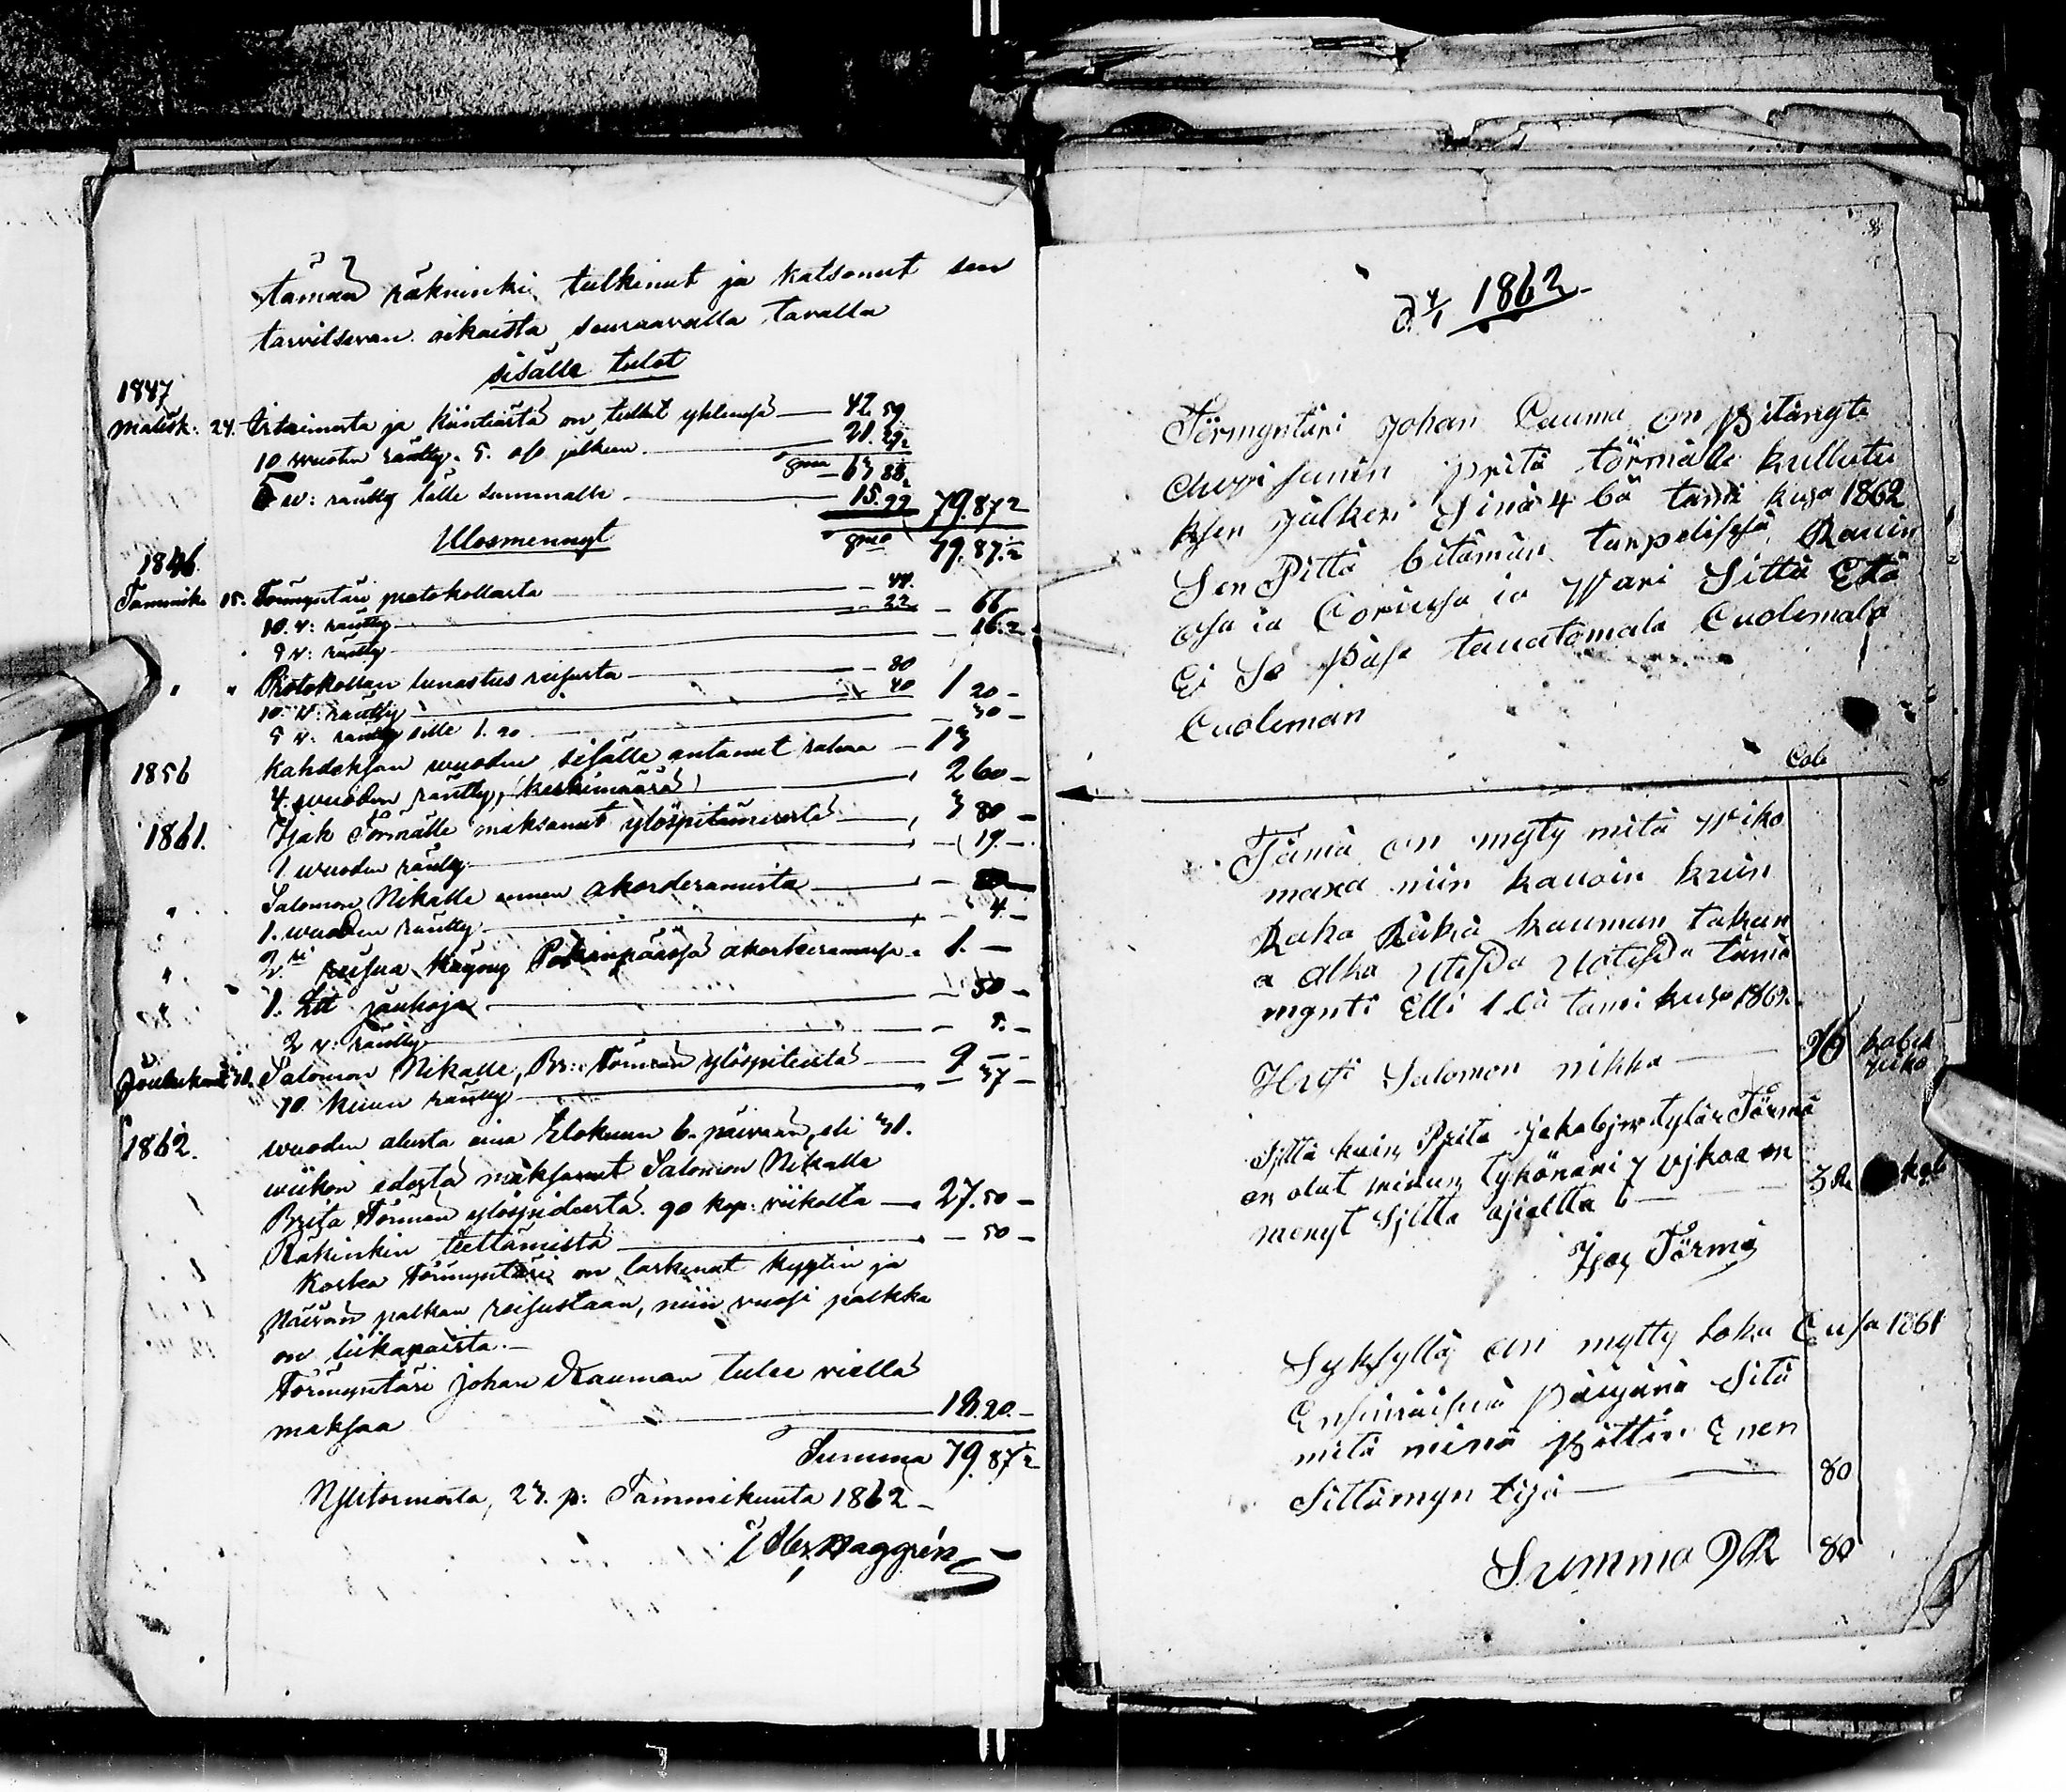 tämän räkninki tulkinut ja katsonut sen
tarvitsevan oikaista seuraavalla tavalla
sisälle tulot
1847
Maalisk. 24. Irtaimesta ja kiinteästä on tullut yhteensä — 42 59
10 wuoden räntty. 5. o/o jälkeen — 21.29½
Summa — 63 88½
5 w: räntty tälle summalle — 15.99 79.87½
Ulosmennyt Summa 79.87.½
1846.
Tammik. 15. Förmyntäri protokollasta — 44.
10. v: räntty — 22 — 66
5 v: räntty — 16.½
" " Protokollan lunastus reisusta — 80
10. v: räntty — 40 1 20 —
5 v: räntty sille 1. 20 — 30 —
1856 Kahdeksan wuoden sisälle antanut rahaa — 13
4. wuoden räntty, (keskimäärä) — 2 60 —
1861. Isak Törmälle maksanut ylöspitämisestä — 3 80 —
1 wuoden räntty — 19. —
" Salomon Nikalle ennen akorderamista —
1. wuoden räntty — 4 —
" 2 si reisua käynyt akorteeramassa — 1. —
" 1. Ltt jauhoja — 50 —
2 v: räntty — 5. —
Joulukuu 31. Salomon Nikalle, Br: Törmän ylöspitosta — 9 —
10 kuun räntty — 37 —
1862. wuoden alusta aina Elokuun 6. päivään, eli 31.
wiikon edestä maksanut Salomon Nikalle
Brita Törmän ylöspidosta. 90 kop: viikolta — 27.50 —
Räkinkin teettämistä — 50 —
Koska Förmyntäri on laskenut kyytin ja
päivän palkan reisustaan, niin vuosi palkka
on liikapaista. —
Förmyntäri Johan Rauman tulee viellä
maksaa — 18.20. —
Summa 79.87½
Ylitorniosta, 23. p: Tammikuuta 1862 —
Haggrén
d 4/1 1862
Förmyntäri Johan Cauma on pitänyte
prita törmälle kullutu
ksen jälken Sinä 4 tä tami kusa 1862
Sen Pittä bitämän
osa ia Coriusa ia Wari Sittä Etä
Ei Se päse tauatomala Cuolemala
Cuoleman
Cob
Tämä on mysty mitä Wiko
maxa niin kauoin kuin
Raha Räkiä kauman takan
a alka tämä
mynti Elli 1 tä tami kusa 1862.
Husi Salomon nikka — 96 kobek Juko
Sjttä kuin Prita Jakobjen tytär Törmä
on olut minun tykönäni 7 vjkoa on
menyt Sjltta ajialtta 6 — 3 R. kob
Isax Törmä
Syksyllä on mytty Loka Cusa 1861
Ensimäisnä päiyänä Sitä
mitä minä pittin Enen
Sittämyn tijä — 80
Summa 9 R 80